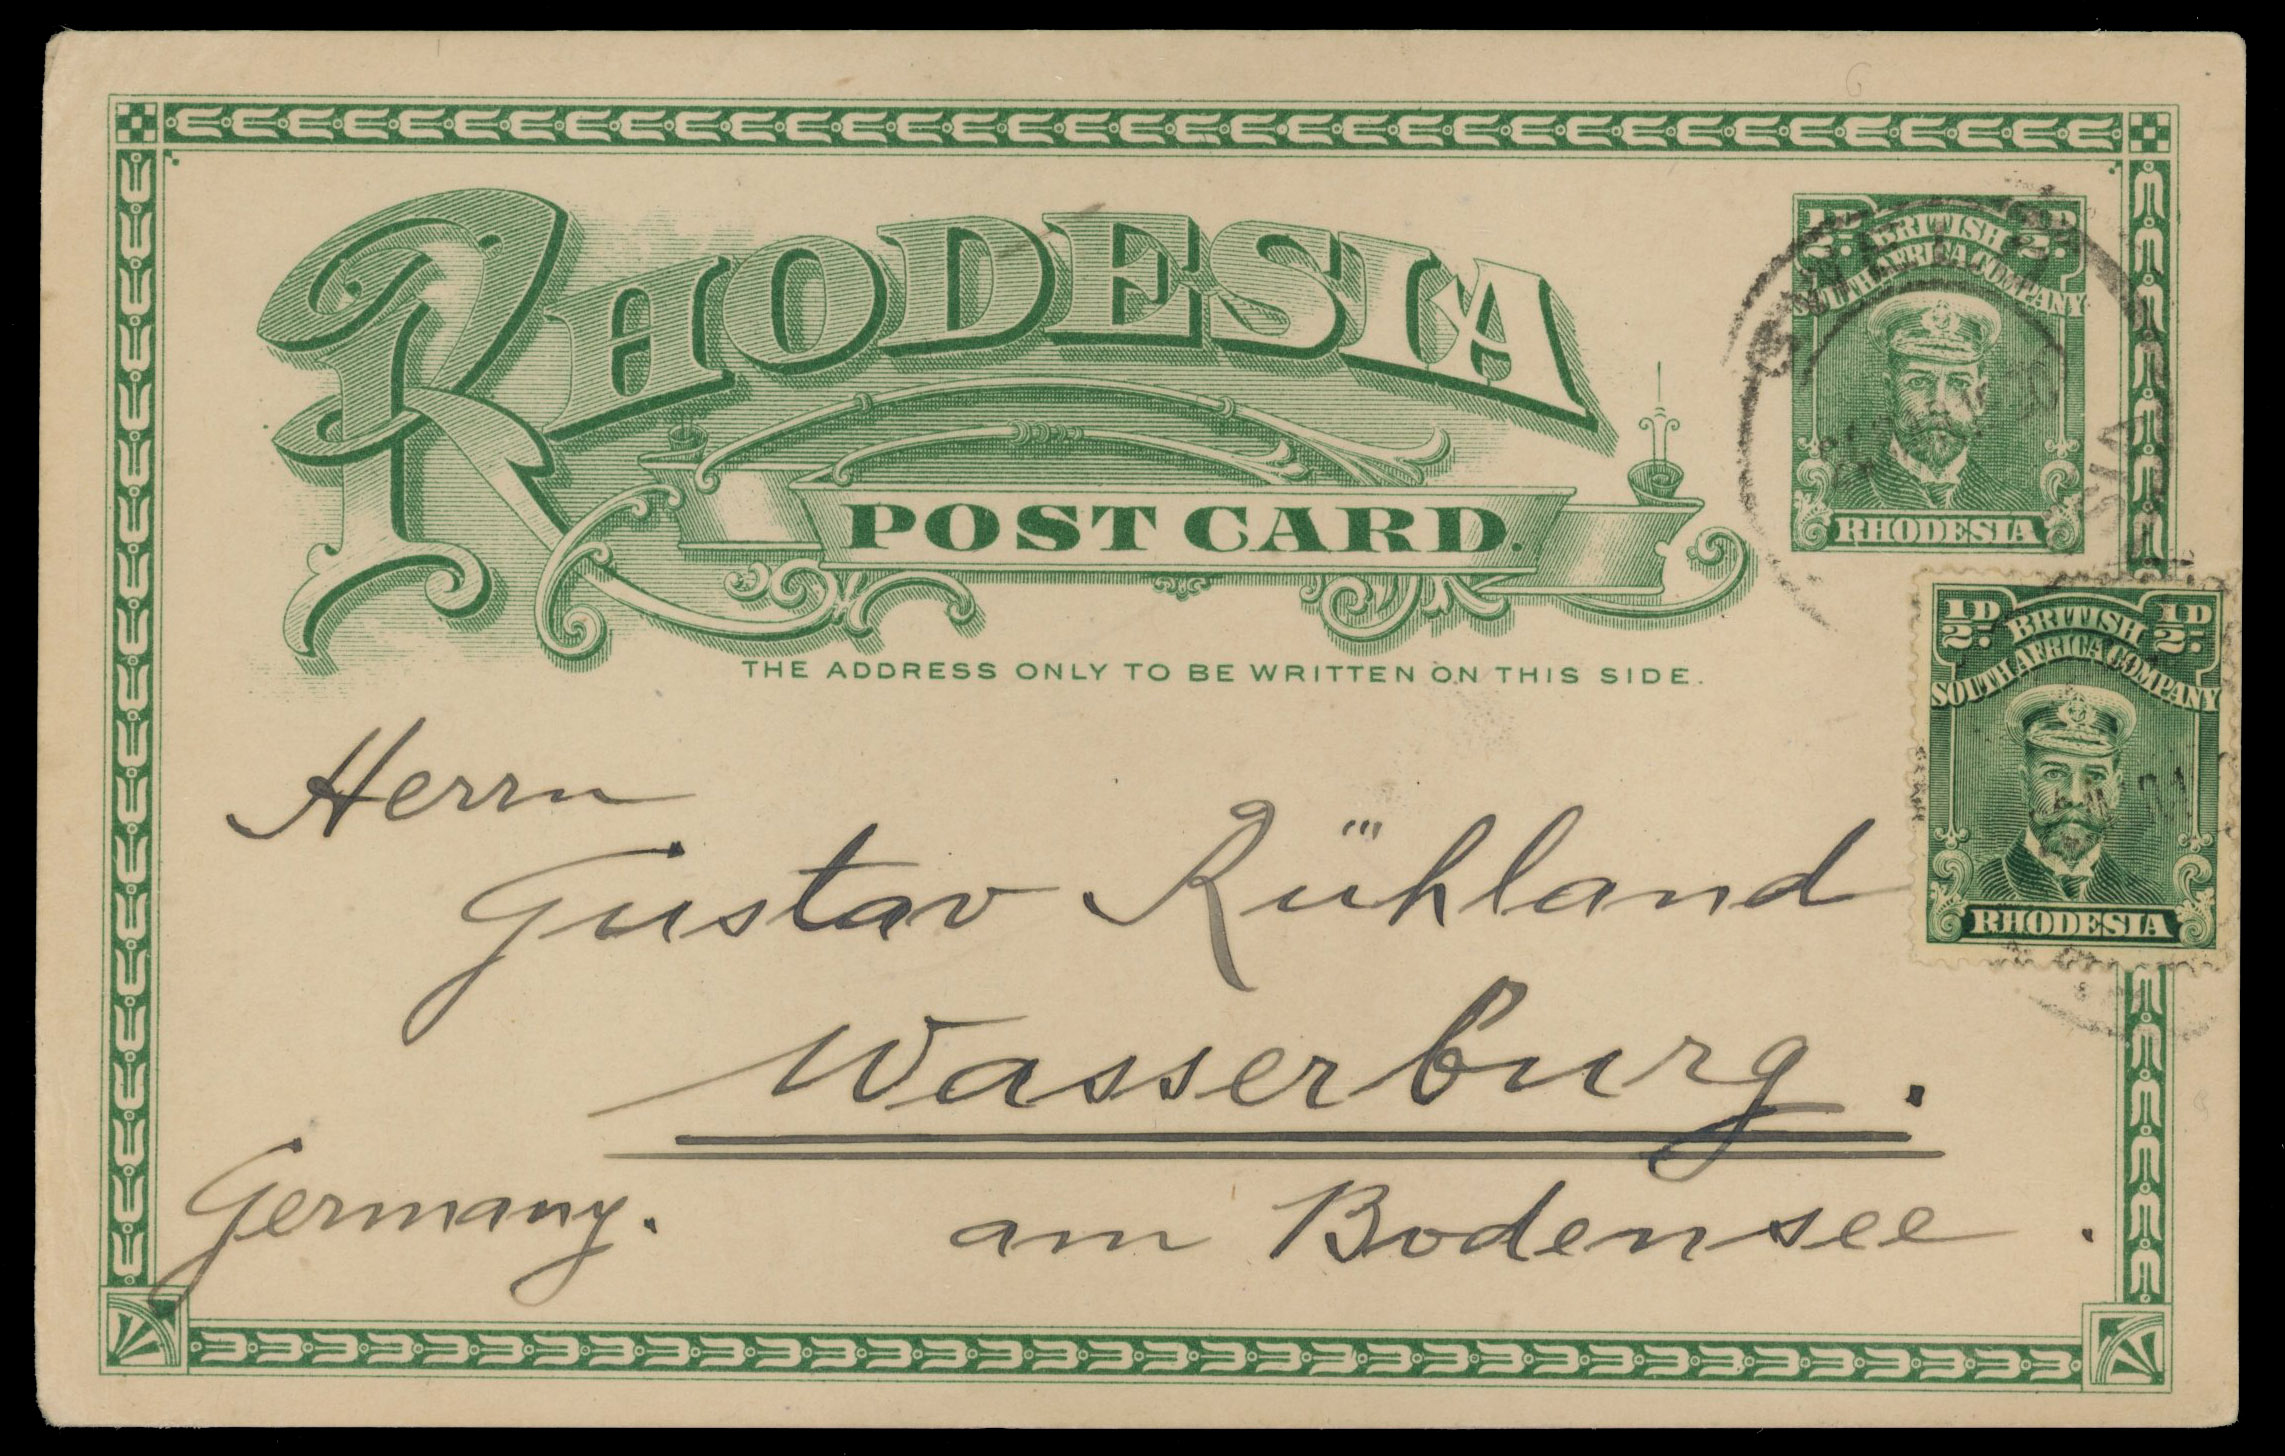 RHODESIA
POST CARD.
THE ADDRESS ONLY TO BE WRITTEN ON THIS SIDE.
½D. BRITISH ½D.
SOUTH AFRICA COMPANY
RHODESIA
½D. BRITISH ½D.
SOUTH AFRICA COMPANY
RHODESIA
Herrn
Gustav Rühland
Wasserburg.
am Bodensee.
Germany.